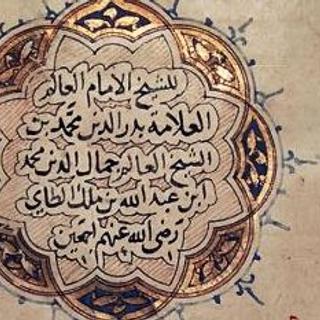 للشيخ الامام العالم
العلامة بدر الدين محمد بن
الشيخ العالم جمال الدين محمد
ابن عبد الله بن ملك الطاي
رضى الله عنهم اجمعين